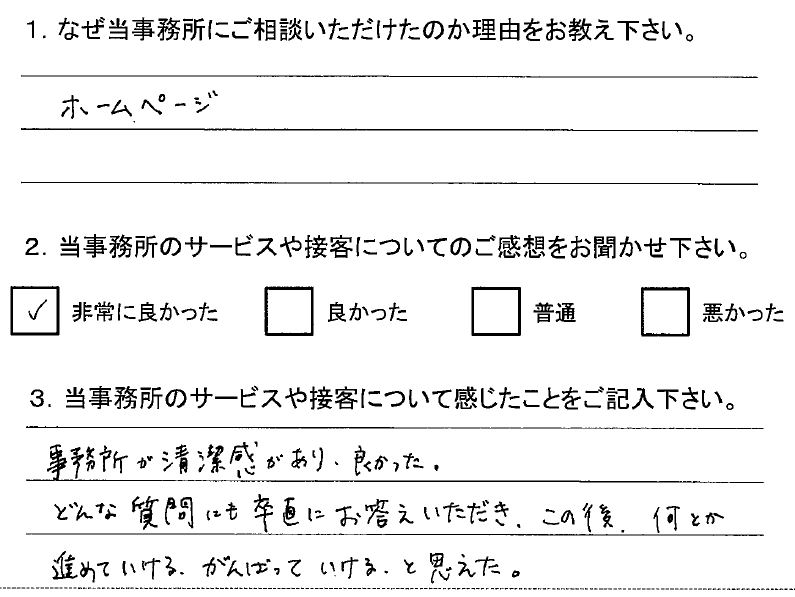 1. なぜ当事務所にご相談いただけたのか理由をお教え下さい。
ホームページ
2. 当事務所のサービスや接客についてのご感想をお聞かせ下さい。
✓ 非常に良かった 良かった 普通 悪かった
3. 当事務所のサービスや接客について感じたことをご記入下さい。
事務所が清潔感があり、良かった。
どんな質問にも率直にお答えいただき、この後、何とか
進めていける、がんばっていける、と思えた。